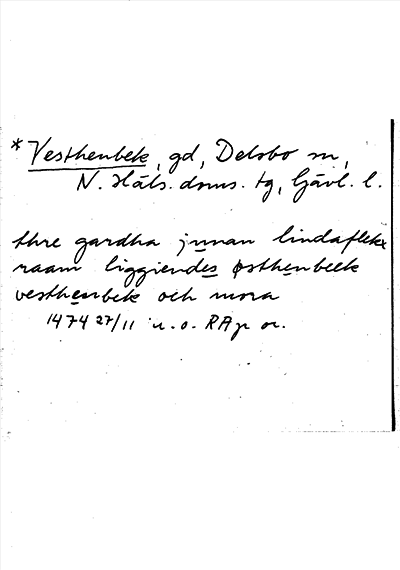 * Vesthenbek, gd, Delsbo sn,
N. Häls. doms. tg, Gävl. l.
thre gardha jnnan lindaflekæ
raam liggiendes østhenbeek
vesthenbek och mora
1474 27/11 u.o. RAp or.